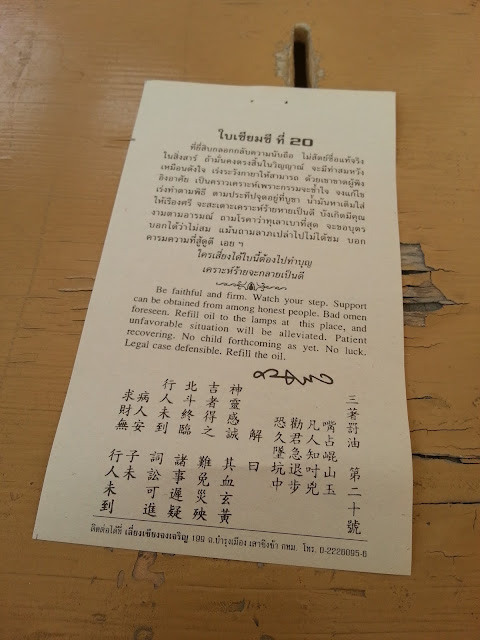 ใบเซียมซี ที่ 20
ที่ยี่สิบกลอกกลับความนับถือ ไม่สัตย์ซื่อแท้จริง
ในสิ่งสาร์ ถ้ามั่นคงตรงสิ้นในวิญญาณ์ จะมีท่าสมหวัง
เหมือนดังใจ เร่งระวังกายาให้สามารถ ด้วยเขาขาดผู้พึ่ง
อิงอาศัย เป็นคราวเคราะห์เพราะกรรมจะช้ำใจ จงแก้ไข
เร่งทำตามพิธี ตามประทีปจุดอยู่ที่บูชา น้ำมันหาเติมใส่
ให้เรืองศรี จะสะเดาะเคราะห์ร้ายหายเป็นดี บังเกิดมีคุณ
งามตามอารมณ์ ถามโรคาว่าทุเลาเบาที่สุด จะขอบุตร
บอกได้ว่าไม่สม แม้นถามลาภเปล่าไปไม่ได้ชม บอก
คารมความที่สู้ดูดี เอย ฯ
ใครเสี่ยงได้ใบนี้ต้องไปทำบุญ
เคราะห์ร้ายจะกลายเป็นดี
Be faithful and firm. Watch your step. Support
can be obtained from among honest people. Bad omen
foreseen. Refill oil to the lamps at this place, and
unfavorable situation will be alleviated. Patient
recovering. No child forthcoming as yet. No luck.
Legal case defensible. Refill the oil.
三著罰油 第二十號
嘴占崐山玉
凡人知吋兇
勸君急退步
恐久墜坑中
解曰
神靈感誠 其血玄黃
吉者得之 難免災殃
北斗終臨 諸事遲疑
行人未到 詞訟可進
病人安 子未
求財無 行人未到
ติดต่อได้ที่ เลี่ยงเซียงจงเจริญ 199 ถ.บำรุงเมือง เสาชิงช้า กทม. โทร. 0-2226095-6